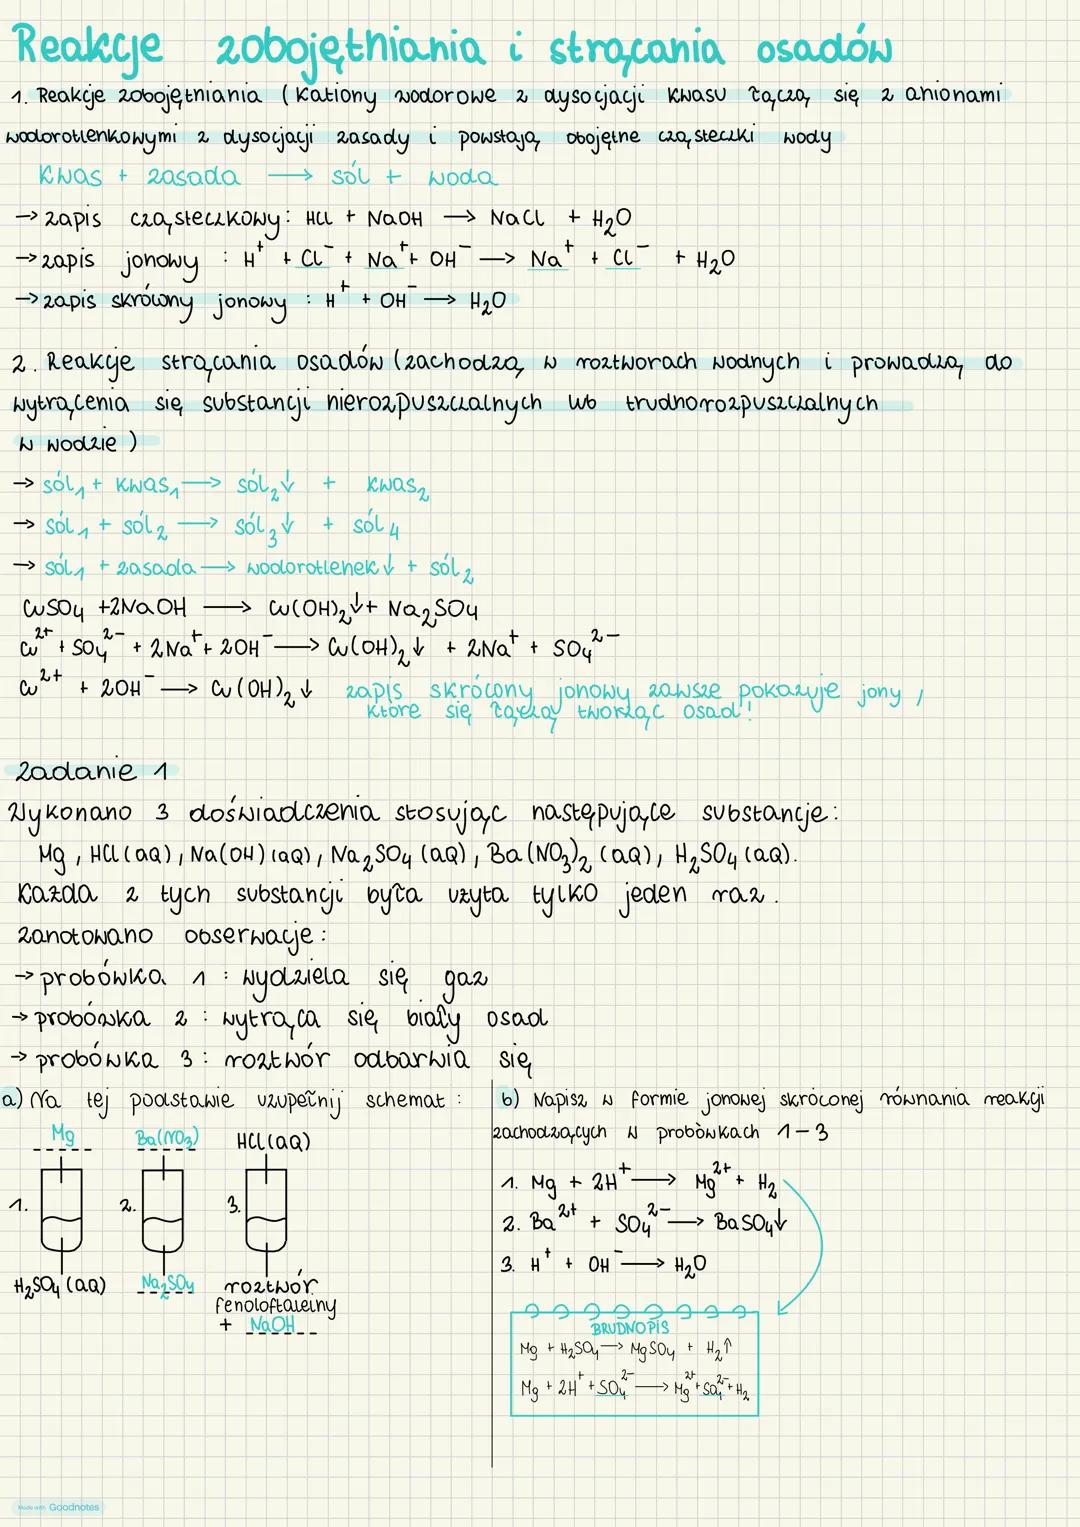 Reakcje zobojętniania i strącania osadów
1. Reakcje zobojętniania (Kationy wodorowe z dysocjacji kwasu łączą się z anionami
wodorotlenkowymi z dysocjacji zasady i powstają obojętne cząsteczki wody
Kwas + zasada → sól + woda
→ zapis cząsteczkowy: HCl + NaOH → NaCl + H₂O
→ zapis jonowy : H⁺ + Cl⁻ + Na⁺ + OH⁻ → Na⁺ + Cl⁻ + H₂O
→ zapis skrócony jonowy : H⁺ + OH⁻ → H₂O
2. Reakcje strącania osadów (zachodzą w roztworach wodnych i prowadzą do
wytrącenia się substancji nierozpuszczalnych lub trudnorozpuszczalnych
w wodzie)
→ sól₁ + kwas₁ → sól₂↓ + kwas₂
→ sól₁ + sól₂ → sól₃↓ + sól₄
→ sól₁ + zasada → wodorotlenek↓ + sól₂
CuSO₄ + 2NaOH → Cu(OH)₂↓ + Na₂SO₄
Cu²⁺ + SO₄²⁻ + 2Na⁺ + 2OH⁻ → Cu(OH)₂↓ + 2Na⁺ + SO₄²⁻
Cu²⁺ + 2OH⁻ → Cu(OH)₂↓ zapis skrócony jonowy zawsze pokazuje jony,
które się łączą tworząc osad!
Zadanie 1
Wykonano 3 doświadczenia stosując następujące substancje:
Mg, HCl(aq), Na(OH)(aq), Na₂SO₄(aq), Ba(NO₃)₂(aq), H₂SO₄(aq).
Każda z tych substancji była użyta tylko jeden raz.
Zanotowano obserwacje:
→ probówka 1 : wydziela się gaz
→ probówka 2 : wytrąca się biały osad
→ probówka 3 : roztwór odbarwia się
a) Na tej podstawie uzupełnij schemat :
Mg Ba(NO₃) HCl(aq)
1. 2. 3.
H₂SO₄(aq) Na₂SO₄ roztwór
fenoloftaleiny
+ NaOH
b) Napisz w formie jonowej skróconej równania reakcji
zachodzących w probówkach 1-3
1. Mg + 2H⁺ → Mg²⁺ + H₂
2. Ba²⁺ + SO₄²⁻ → BaSO₄↓
3. H⁺ + OH⁻ → H₂O
BRUDNOPIS
Mg + H₂SO₄ → MgSO₄ + H₂↑
Mg + 2H⁺ + SO₄²⁻ → Mg²⁺ + SO₄²⁻ + H₂
Made with Goodnotes